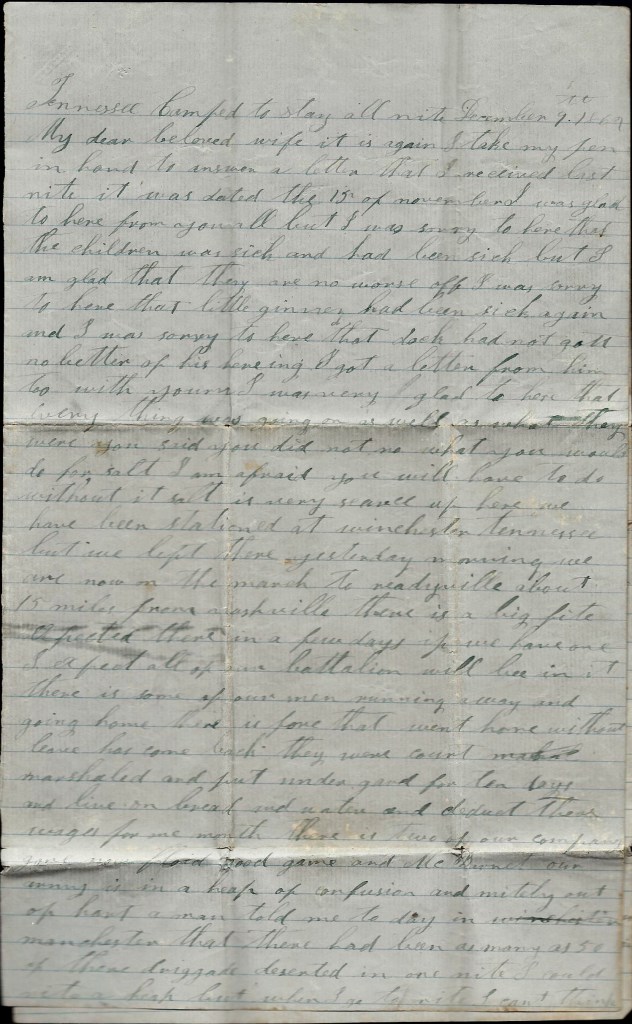 Tennessee Camped to stay all nite December 9th. 1862
My dear beloved wife it is again I take my pen
in hand to answer a letter that I received last
nite it was dated the 15 of november I was glad
to here from you all but I was sorry to here that
the children was sick and had been sick but I
am glad that they are no worse off I was sorry
to here that little ginney had been sick again
and I was sorry to here that dock had not gott
no better of his hereing I got a letter from him
to with yours I was very glad to here that
every thing was going on as well as what they
were you said you did not no what you would
do for salt I am afraid you will have to do
without it salt is very scarce up here we
have been stationed at winchester tennessee
but we left there yesterday morning we
are now on the march to readyville about
15 miles from nashville there is a big fite
expected there in a few days if we have one
I expect all of our battalion will bee in it
there is some of our men running away and
going home here is fore that went home without
leave has come back they were court
marshaled and put under gard for ten days
and live on bread and water and deduct there
wages for one month there is two of our company
good game and our
army is in a heap of confusion and mitely out
of hart a man told me to day in winchester
manchester that there had been as many as 50
of there briggade deserted in one nite I could
a heap but when I go to rite I cant think